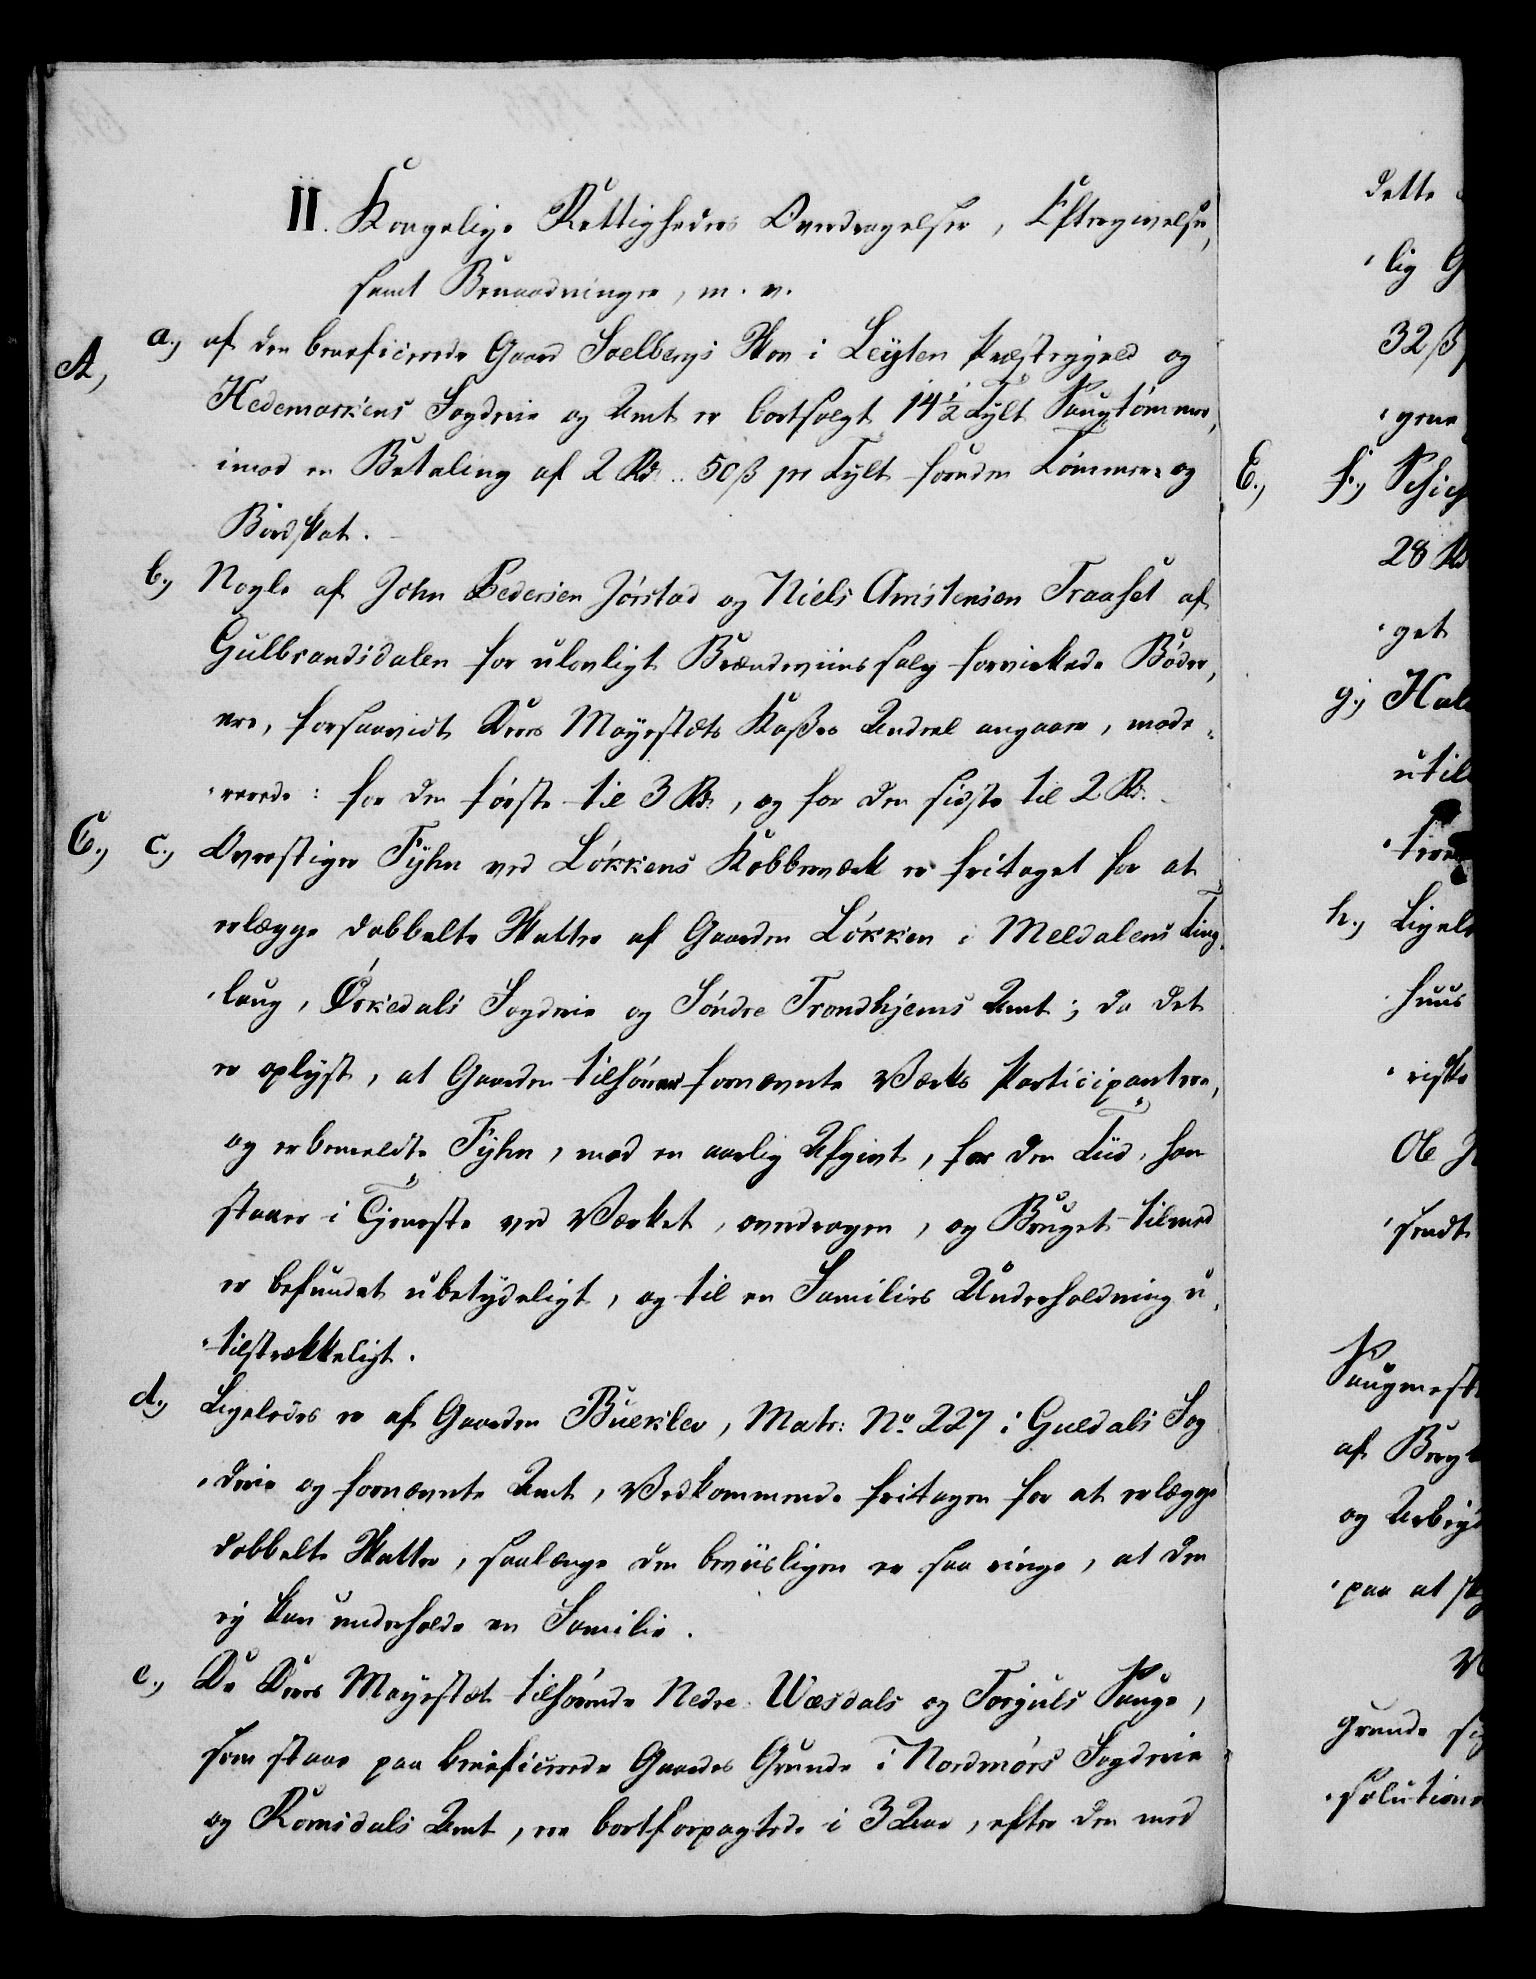 II. Kongelige Rettigheders Overdragelser, Eftergivelser,
samt Benaadninger, m. v.
A, a., af den beneficerede Gaard Soelbergs Skov i Leyten Præstegjeld og
Hedemarkens Fogderie og Amt er bortsolgt 14½ Tylt Saugtömmer,
imod en Betaling af 2 Rd. 50 ß pr Tylt foruden Tömmer- og
Bördskat.
b., Nogle af John Pedersen Jörstad og Niels Amstensen Traaset af
Gulbrandsdalen for ulovligt Brændeviinssalg forvirkede Böder,
ere, forsaavidt Deres Mayestæts Kaßes Andeel angaaer, mode-
-rerede: for den förste til 3 Rd., og for den sidste til 2 Rd.
C., c., Overstiger Fÿhn ved Lökkens Kobberværk er fritaget for at
erlægge dobbelte Skatter af Gaarden Lökken i Meldalens Ting-
-laug, Örkedals Fogderie og Söndre Trondhjems Amt; da det
er oplyst, at Gaarden tilhörer fornævnte Værks Participantere,
og er bemeldte Fÿhn, mod en aarlig Afgivt, for den Tiid, han
staaer i Tjeneste ved Værket, overdragen, og Bruget tilmed
er befundet ubetydeligt, og til en Families Underholdning u-
-tilstrækkeligt.
d., Ligeledes er af Gaarden Bueklev, Matr: No. 227 i Guldals Fog-
-derie og fornævnte Amt, Vedkommende fritagen for at erlægge
dobbelte Skatter, saalænge den beviisligen er saa ringe, at den
ej kan underholde en Familie.
e., De Deres Mayestæt tilhörende Nedre Wæsdals og Torjuls Sauge,
som staae paa beneficerede Gaardes Grunde i Nordmörs Fogderie
og Romsdals Amt, ere bortforpagtede i 3 Aar, efter den med
dette
-lig
32 ß
-gene
E., f.,
28 Rd
-get
g.,
util
h., Ligele
huus
-riske
Ole
-sendt
Saugmest
af Berg
og Arbeyd
-paa at
grunde
-solution